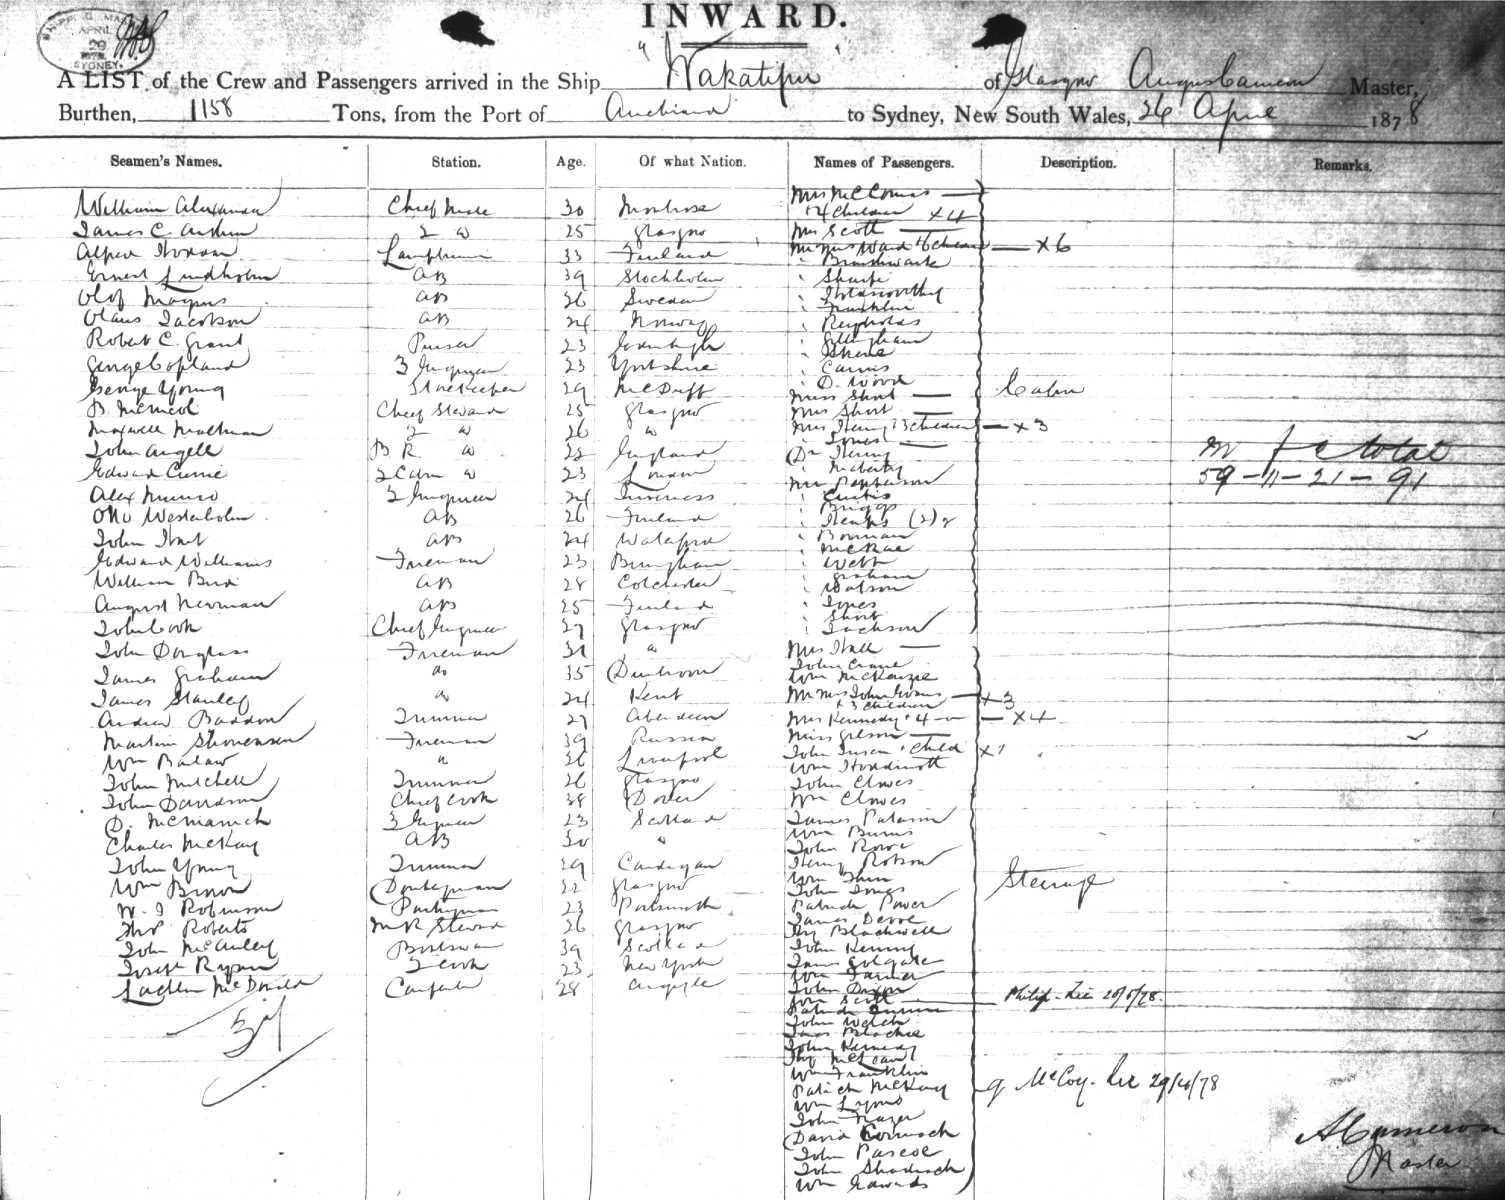 SHIPPING MA
APRIL
29
1878
SYDNEY.
INWARD.
A LIST of the Crew and Passengers arrived in the Ship "Wakatipu" of Glasgow Angus Cameron Master,
Burthen, 1158 Tons, from the Port of Auckland to Sydney, New South Wales, 26 April 1878
Seamen's Names. Station. Age. Of what Nation. Names of Passengers. Description. Remarks.
William Alexander Chief Mate 30 Montrose
James C. 2 " 25 Glasgow
Alfred Lamptrimmer 33 Finland
Ernest Lindholm AB 39 Stockholm
Olof Magnus AB 26 Sweden
Olaus Jacobson AB 24 Norway
Robert C. Grant Purser 23 Edinburgh
George Copland 3 Engineer 23 Yorkshire
George Young Storekeeper 29 McDuff
B. McNicol Chief Steward 25 Glasgow
Maxwell 2 " 26 "
John Argell B R. " 22 England
Edward Currie 2 Cabin " 23 London
Alex Munro 2 Engineer 24 Inverness
Otto Westerholm AB 26 Finland
John AB 24 Waterford
Edward Williams Fireman 23 Birmingham
William Bird AB 28 Colchester
August Newman AB 25 Finland
John Cook Chief Engineer 37 Glasgow
John Douglass Fireman 31 "
James Graham do 35 Dunkroon
James Stanley " 24 Kent
Andrew Trimmer 27 Aberdeen
Martin Fireman 39 Russia
Wm Barlow " 36 Liverpool
John Mitchell Trimmer 26 Glasgow
John Davidson Chief Cook 38 Dover
D. 3 Engineer 23 Scotland
Charles McKay AB 30 "
John Young Trimmer 29 Cardigan
Wm Brown Donkeyman 32 Glasgow
W. J. Robinson Pantryman 23 Portsmouth
Thos Roberts M R Steward 26 Glasgow
John McAuley Boatswain 39 Scotland
Joseph Ryan 2 Cook 23 New York
Lachlan McDonald Carpenter 28 Argyle
Mrs McComas
+ 4 Children x4
Mrs Scott
Mr Mrs Ward + 6 Children x6
" Braithwaite
" Sharpe
" Holdsworthy
" Franklin
" Reynolds
" Gillingham
" Skene
" Cairns
" D. Wood
Miss Short
Mrs Short
Mrs Henry + 3 Children x3
" Jones
Dr Henry
" Moberly
Mr Stephenson
" Curtis
" Briggs
" (2) 2
" Bowman
" McRae
" Webb
" Graham
" Watson
" Jones
" Short
" Jackson
Cabin
m f c total
59-11-21-91
Mrs Hall
John Crane
Wm McKenzie
Mr Mrs John Evans
+ 3 children x3
Mrs Kennedy + 4 x4
Miss Gilson
John + child x1
Wm
John Clowes
Wm Clowes
James Paterson
Wm Burns
John Rowe
Henry Robson
Wm
John Jones
Patrick Power
James
Hy Blackwell
John Kenny
James Colgate
Wm Farmer
John Dixon
Jon Scott
Patrick
John Welch
James Blackie
John Kennedy
Hy McLean
Wm Franklin
Patrick McKay
Wm Lyons
John Frazer
David Cornish
John Pascoe
John
Wm Edwards
Steerage
G McCoy. 29/4/78
A Cameron
Master